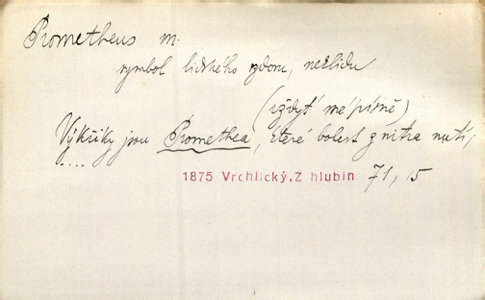 Prometheus m.
symbol lidského vzdoru, neklidu
(vždyť mé písně)
Výkřiky jsou Promethea, které bolest z nitra nutí,
....
1875 Vrchlický, Z hlubin 71, 15